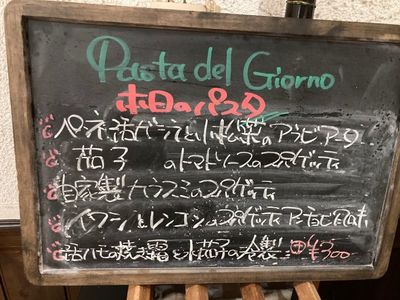 Pasta del Giorno
本日のパスタ
ペンネ 活ダコと小松菜のアラビアータ
茄子のトマトソースのスパゲッティ
自家製カラスミのスパゲッティ
ベーコンとレンコンのスパゲッティ アンチョビ風味
活ハモの焼霜と水茄子の冷製